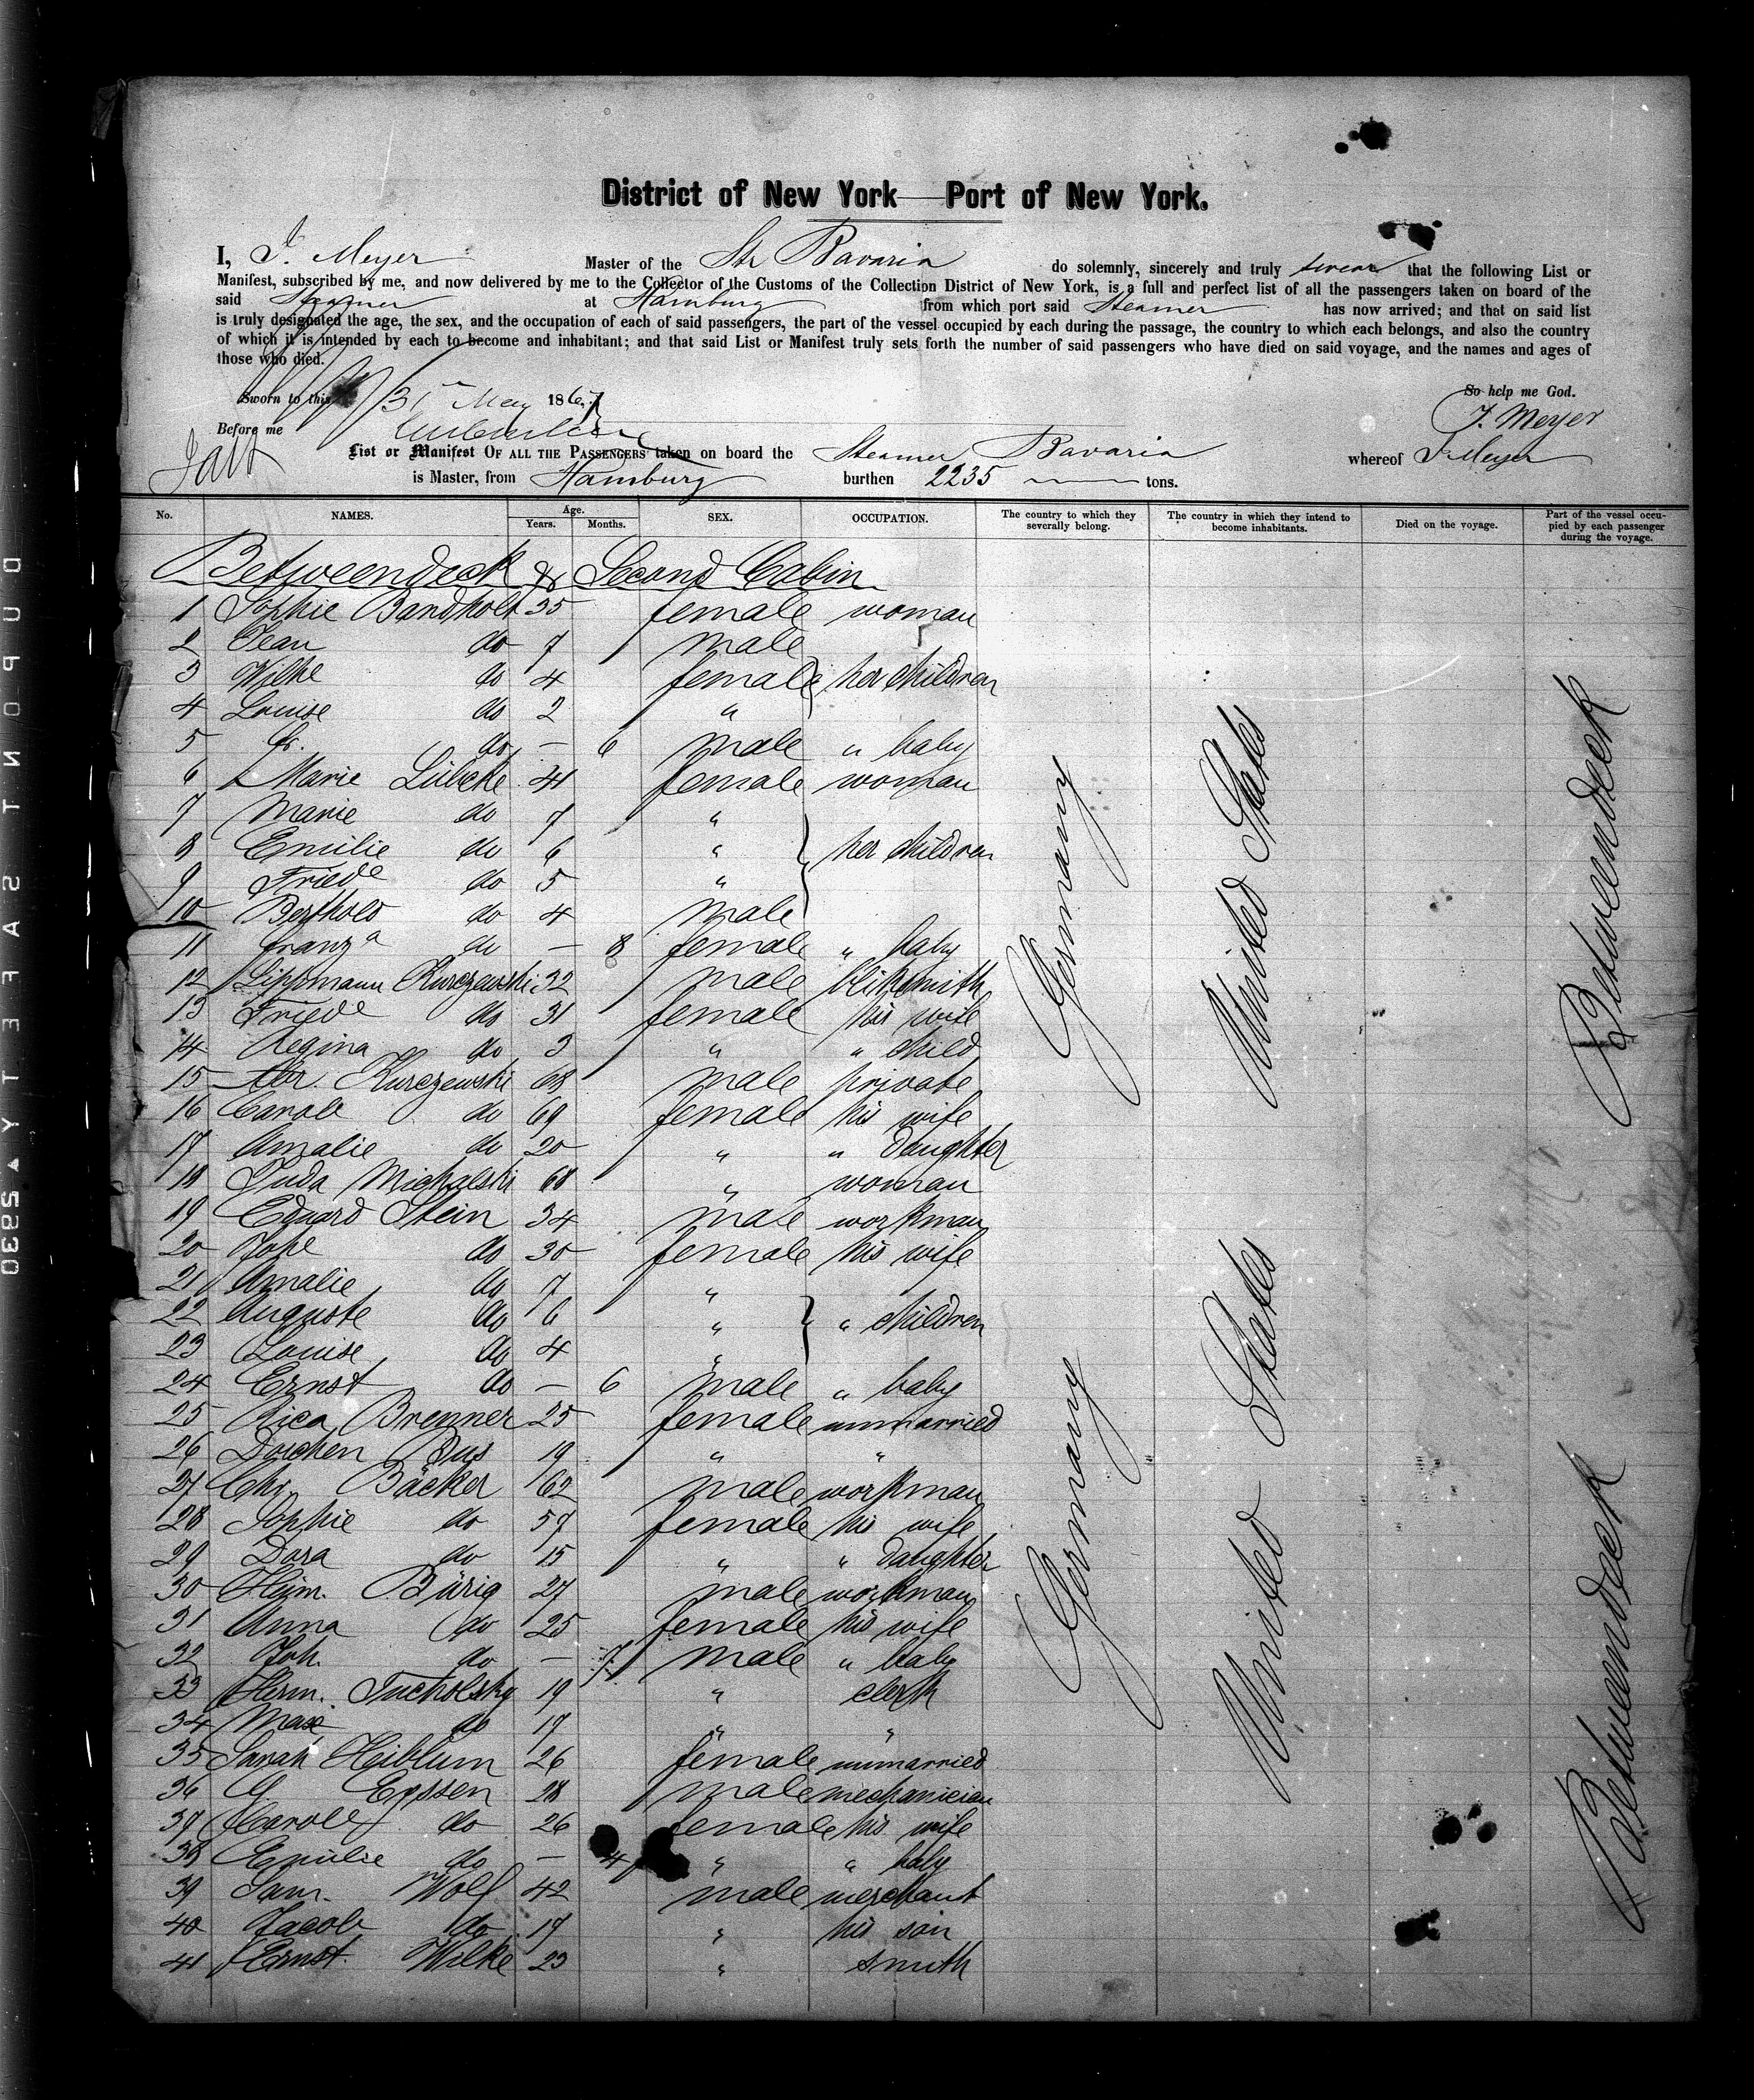 District of New York — Port of New York.
I, F. Meyer Master of the Str Bavaria do solemnly, sincerely and truly swear that the following List or
Manifest, subscribed by me, and now delivered by me to the Collector of the Customs of the Collection District of New York, is a full and perfect list of all the passengers taken on board of the
said Steamer at Hamburg from which port said Steamer has now arrived; and that on said list
is truly designated the age, the sex, and the occupation of each of said passengers, the part of the vessel occupied by each during the passage, the country to which each belongs, and also the country
of which it is intended by each to become and inhabitant; and that said List or Manifest truly sets forth the number of said passengers who have died on said voyage, and the names and ages of
those who died.
Sworn to this 31 May 1867 So help me God.
Before me F. Meyer
List or Manifest OF ALL THE PASSENGERS taken on board the Steamer Bavaria whereof F. Meyer
is Master, from Hamburg burthen 2235 tons.
No. NAMES. Age. Years. Months. SEX. OCCUPATION. The country to which they severally belong. The country in which they intend to become inhabitants. Died on the voyage. Part of the vessel occupied by each passenger during the voyage.
Betweendeck & Second Cabin
1 Sophie Bandholt 35 female woman
2 Jean do 7 male
3 Wilhe do 4 female } her children
4 Louise do 2 "
5 Fr. do — 6 male " baby
6 Marie Lübcke 41 female woman
7 Marie do 7 "
8 Emilie do 6 " } her children
9 Friede do 5 "
10 Berthold do 4 male
11 Franza do — 8 female " baby
12 Lippmann Kurczewski 32 male
13 Friede do 31 female his wife
14 Regina do 3 " " child
15 Abr. Kurczewski 68 male private
16 Carole do 69 female his wife
17 Amalie do 20 " " daughter
18 Juda Michalski 68 " woman
19 Eduard Stein 34 male workman
20 do 30 female his wife
21 Amalie do 7 "
22 Auguste do 6 " } " children
23 Louise do 4 "
24 Ernst do — 6 male " baby
25 Rica Brenner 25 female unmarried
26 Dorchen Bus 19 " "
27 Chr. Bäcker 62 male workman
28 Sophie do 57 female his wife
29 Dora do 15 " " daughter
30 Heinr. Bürig 27 male workman
31 Anna do 25 female his wife
32 Joh. do — 7 male " baby
33 Herm. Tucholsky 19 " clerk
34 Max do 17 " "
35 Sarah Heiblum 26 female unmarried
36 G Eppsen 28 male mechanician
37 Carole do 26 female his wife
38 Emilie do — 4 " " baby
39 Sam. Wolf 42 male merchant
40 Jacob do 17 " his son
41 Ernst Wilke 23 " smith
Germany
United States
Betweendeck
Germany
United States
Betweendeck